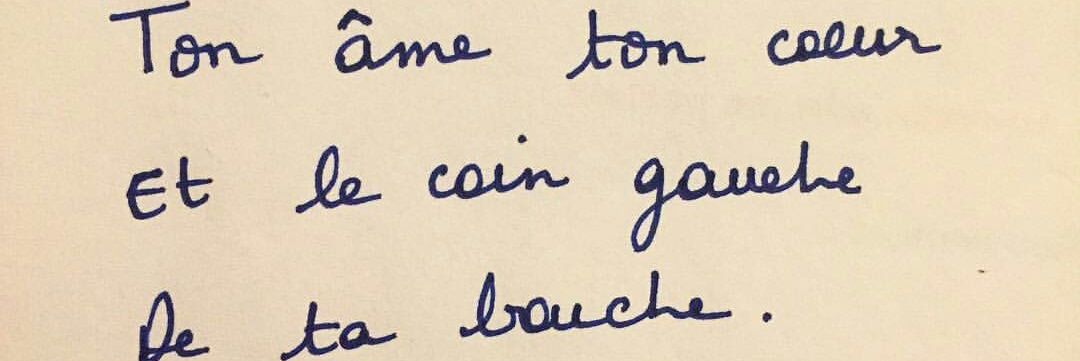 Ton âme ton coeur
Et le coin gauche
De ta bouche.